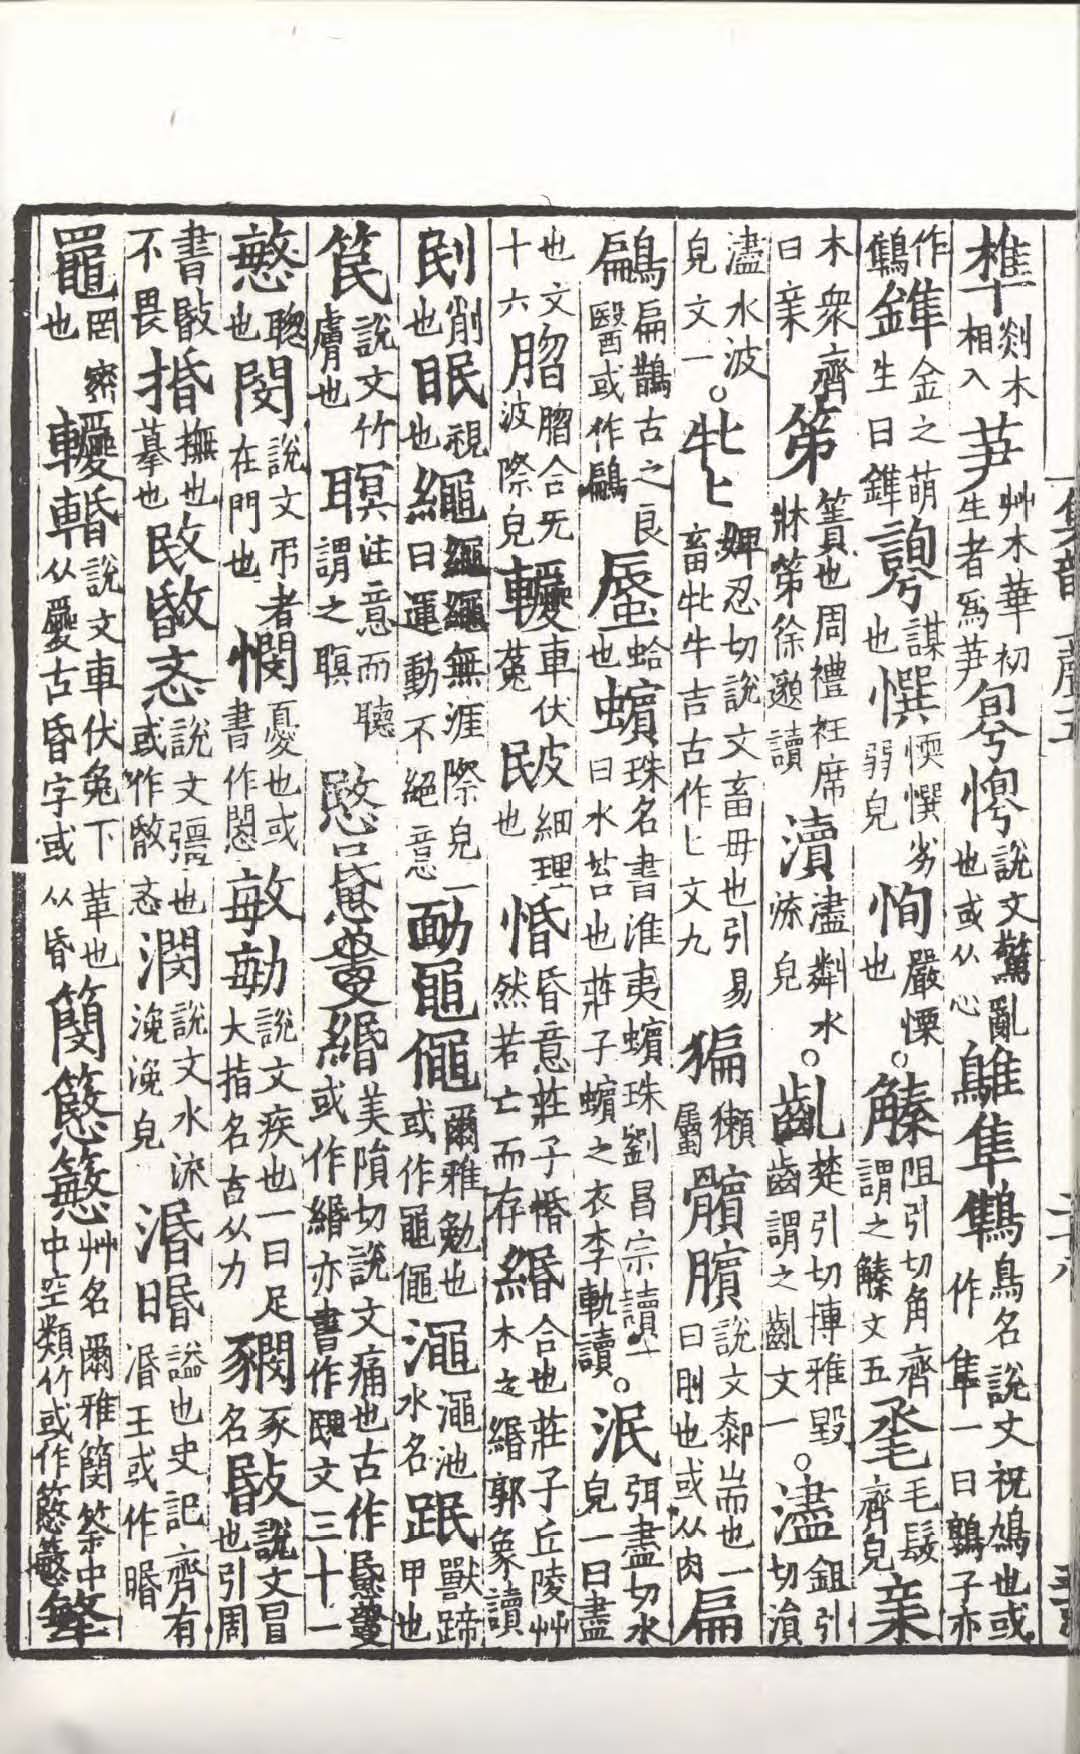 集韻上聲五 二十八
榫剡木相入芛艸木華初生者爲芛說文驚亂也或从心鵻隼鶽鳥名說文祝鳩也或作隼一曰鶉子亦
作鶽鎨金之萌生曰鎨謀也愞㦏劣弱皃恂嚴慄也○阻引切角齊謂之文五毛髮齊皃亲
木衆齊曰亲笫簀也周禮衽席牀笫徐邈讀濜粼水皃○齔楚引切博雅毀齒謂之齔文一○濜鉏引切
濜水波皃文一○牝匕婢忍切說文畜母也引易畜牝牛吉古作匕文九猵獺屬髕臏說文厀耑也一曰刖也或从肉扁
鶣扁鵲古之良醫或作鶣蜃蛤也蠙珠名書淮夷蠙珠劉昌宗讀一曰水苔也莊子蠙之衣李軌讀○泯弭盡切水皃一曰盡
也文十六脗脗合旡波際皃車伏菟皮細理也惽昏意莊子惽然若亡而存緡合也莊子丘陵艸木之緡郭象讀
刡削也眠視也繩繩繩無涯際皃一曰運動不絕意勔黽僶爾雅勉也或作黽僶澠澠池水名獸蹄甲也
笢說文竹膚也注意而聽謂之緡美隕切說文痛也古作或作緡亦書作文三十一
慜聰也閔說文弔者在門也憫憂也或書作敏勄說文疾也一曰足大指名古从力豕名敃說文冒也引周
書敃不畏捪撫也摹也敃敯忞說文彊也或作敯忞潣說文水流浼浼皃湣謚也史記齊有湣王或作
說文車伏兔下革也从古昏字或从昏簢艸名爾雅簢筡中中空類竹或作